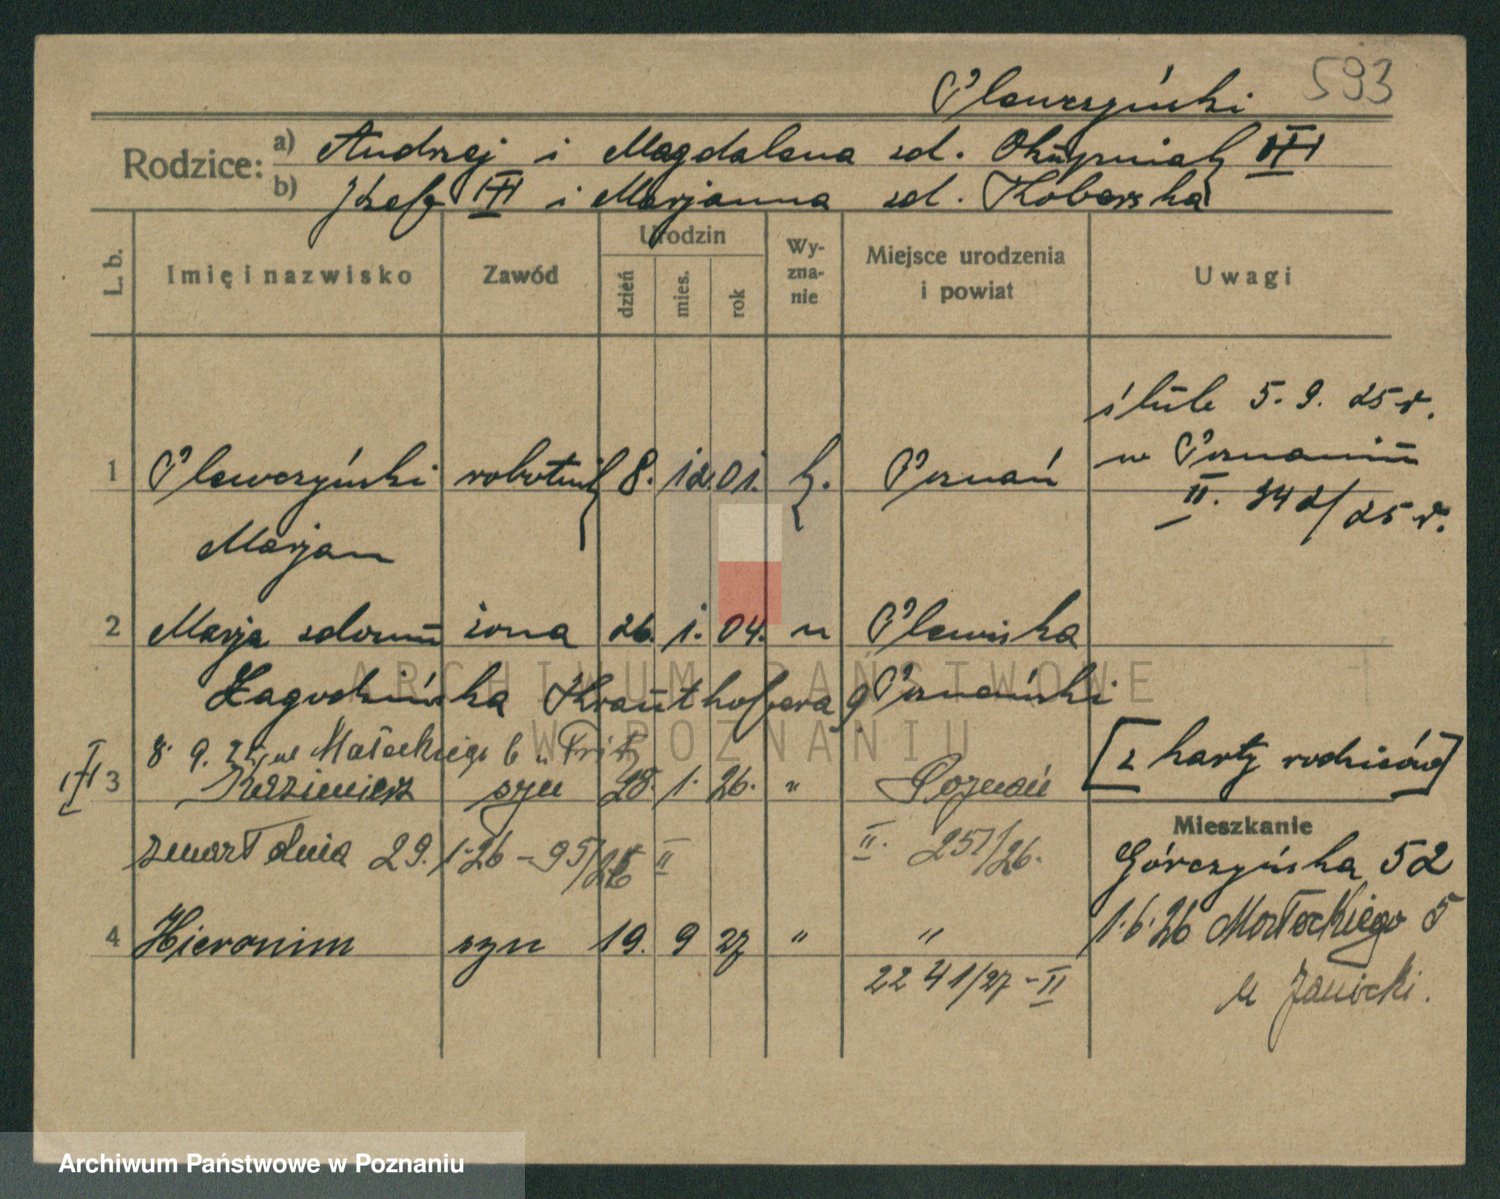 593
Plewczyński
Rodzice: a) Andrzej i Magdalena zd.
b) Józef i Marjanna zd. Koberska
L. b. Imię i nazwisko Zawód Urodzin dzień mies. rok Wy-zna-nie Miejsce urodzenia i powiat Uwagi
ślub 5. 9. 25 r.
w Poznaniu
II. 342/25 r.
1 Plewczyński robotnik 8. 12. 01. k. Poznań
Marjan
2 Marja zdom żona 26. 1. 04. " Plewiska
Zagodzińska Krauthofera 9 Poznański
8. 9. 25 ul Małeckiego 6 u Fritz
[z karty rodziców]
3 Kazimierz syn 28. 1. 26. " Poznań
zmarł dnia 29. 1. 26 - 95/26 II
II. 257/26.
Mieszkanie
Górczyńska 52
4 Hieronim syn 19. 9 27 " "
2241/27 - II
1. 6. 26 Małeckiego 5
u Janicki.
ARCHIWUM PAŃSTWOWE
W POZNANIU
Archiwum Państwowe w Poznaniu